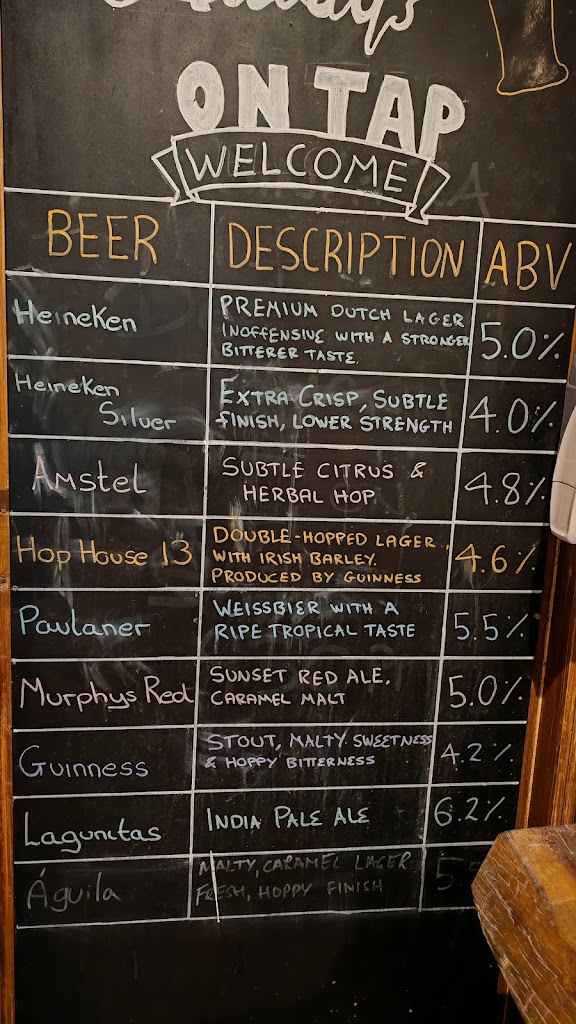 Always
ON TAP
WELCOME
BEER DESCRIPTION ABV
Heineken PREMIUM DUTCH LAGER
INOFFENSIVE WITH A STRONGER
BITTERER TASTE. 5.0%
Heineken
Silver EXTRA CRISP, SUBTLE
FINISH, LOWER STRENGTH 4.0%
Amstel SUBTLE CITRUS &
HERBAL HOP 4.8%
Hop House 13 DOUBLE-HOPPED LAGER
WITH IRISH BARLEY.
PRODUCED BY GUINNESS 4.6%
Paulaner WEISSBIER WITH A
RIPE TROPICAL TASTE 5.5%
Murphys Red SUNSET RED ALE.
CARAMEL MALT 5.0%
Guinness STOUT, MALTY SWEETNESS
& HOPPY BITTERNESS 4.2%
Lagunitas INDIA PALE ALE 6.2%
Águila MALTY, CARAMEL LAGER
FRESH, HOPPY FINISH